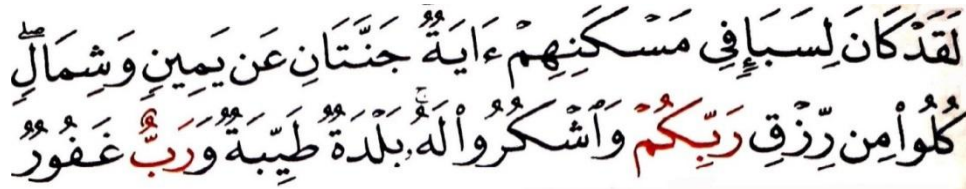 لَقَدْ كَانَ لِسَبَإٍ فِى مَسْكَنِهِمْ ءَايَةٌ جَنَّتَانِ عَن يَمِينٍ وَشِمَالٍ ۖ
كُلُوا۟ مِن رِّزْقِ رَبِّكُمْ وَٱشْكُرُوا۟ لَهُۥ ۚ بَلْدَةٌ طَيِّبَةٌ وَرَبٌّ غَفُورٌ